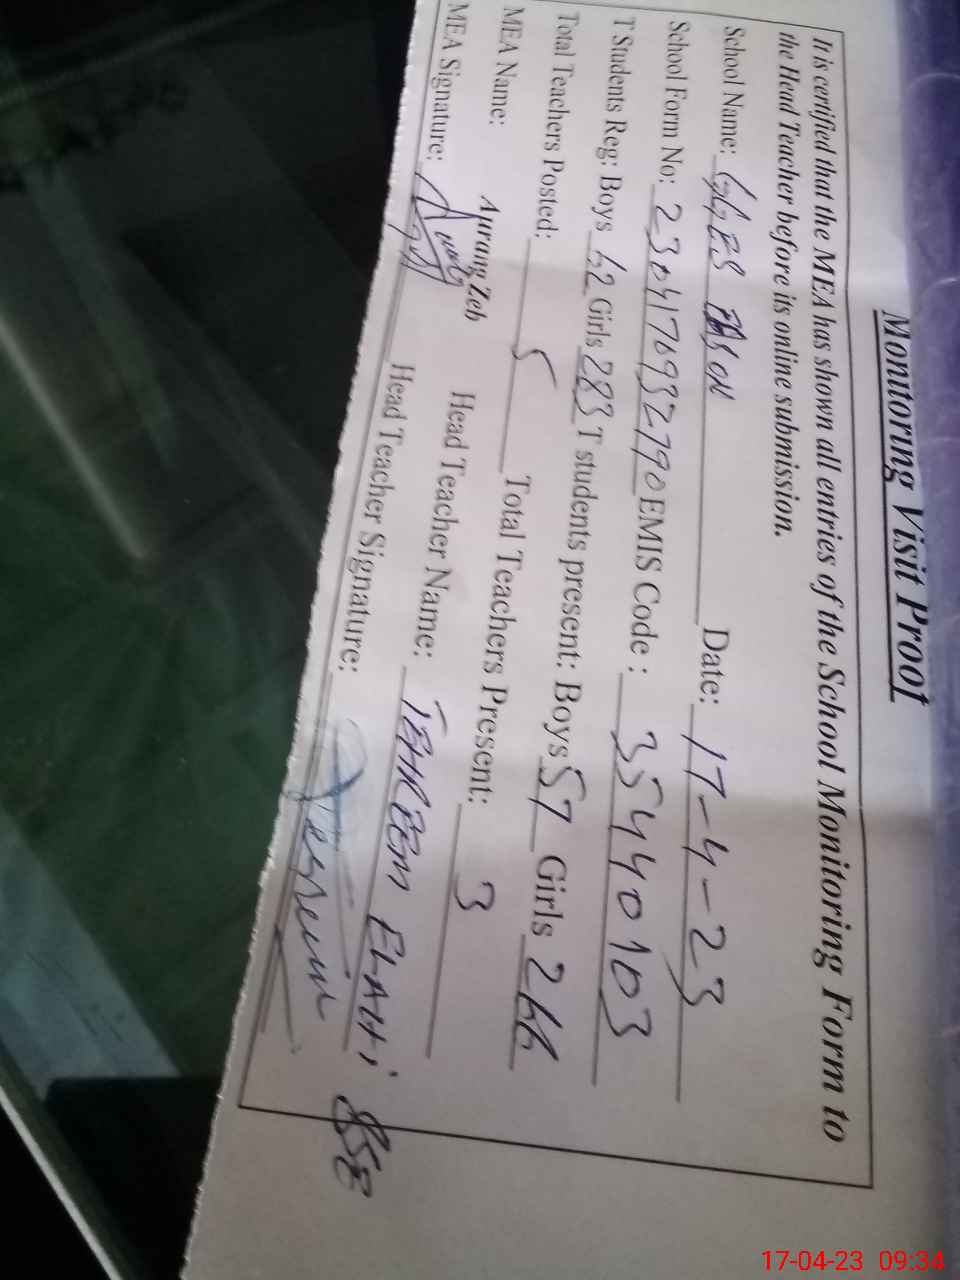 Monitoring Visit Proof
It is certified that the MEA has shown all entries of the School Monitoring Form to
the Head Teacher before its online submission.
School Name: GGES Date: 17-4-23
School Form No: 2304170932790 EMIS Code : 35440103
T Students Reg: Boys 62 Girls 283 T students present: Boys 57 Girls 266
Total Teachers Posted: 5 Total Teachers Present: 3
MEA Name: Aurang Zeb Head Teacher Name: TEHREEM ELAHI
MEA Signature: Head Teacher Signature:
17-04-23 09:34